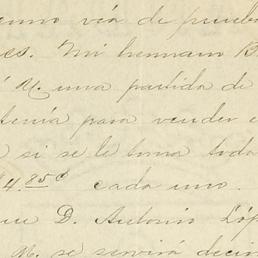 uno via de prueba
es. Mi hermano B
M. una partida de
tenia para vender e
si se le toma toda
$4.85º cada uno.
ue D. Antonio Lóp
M. se servirá decir